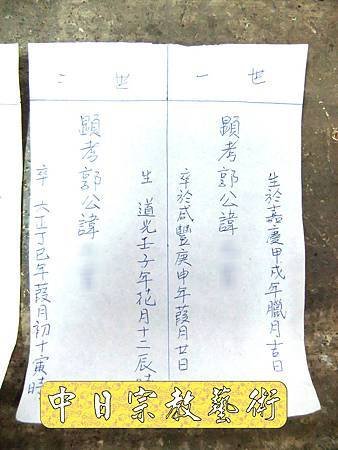 一世
顯考郭公諱
生於嘉慶甲戌年臘月吉日
卒於咸豐庚申年葭月廿日
二世
顯考郭公諱
生 道光壬子年花月十二辰時
卒 大正丁巳年葭月初十寅時
中日宗教藝術